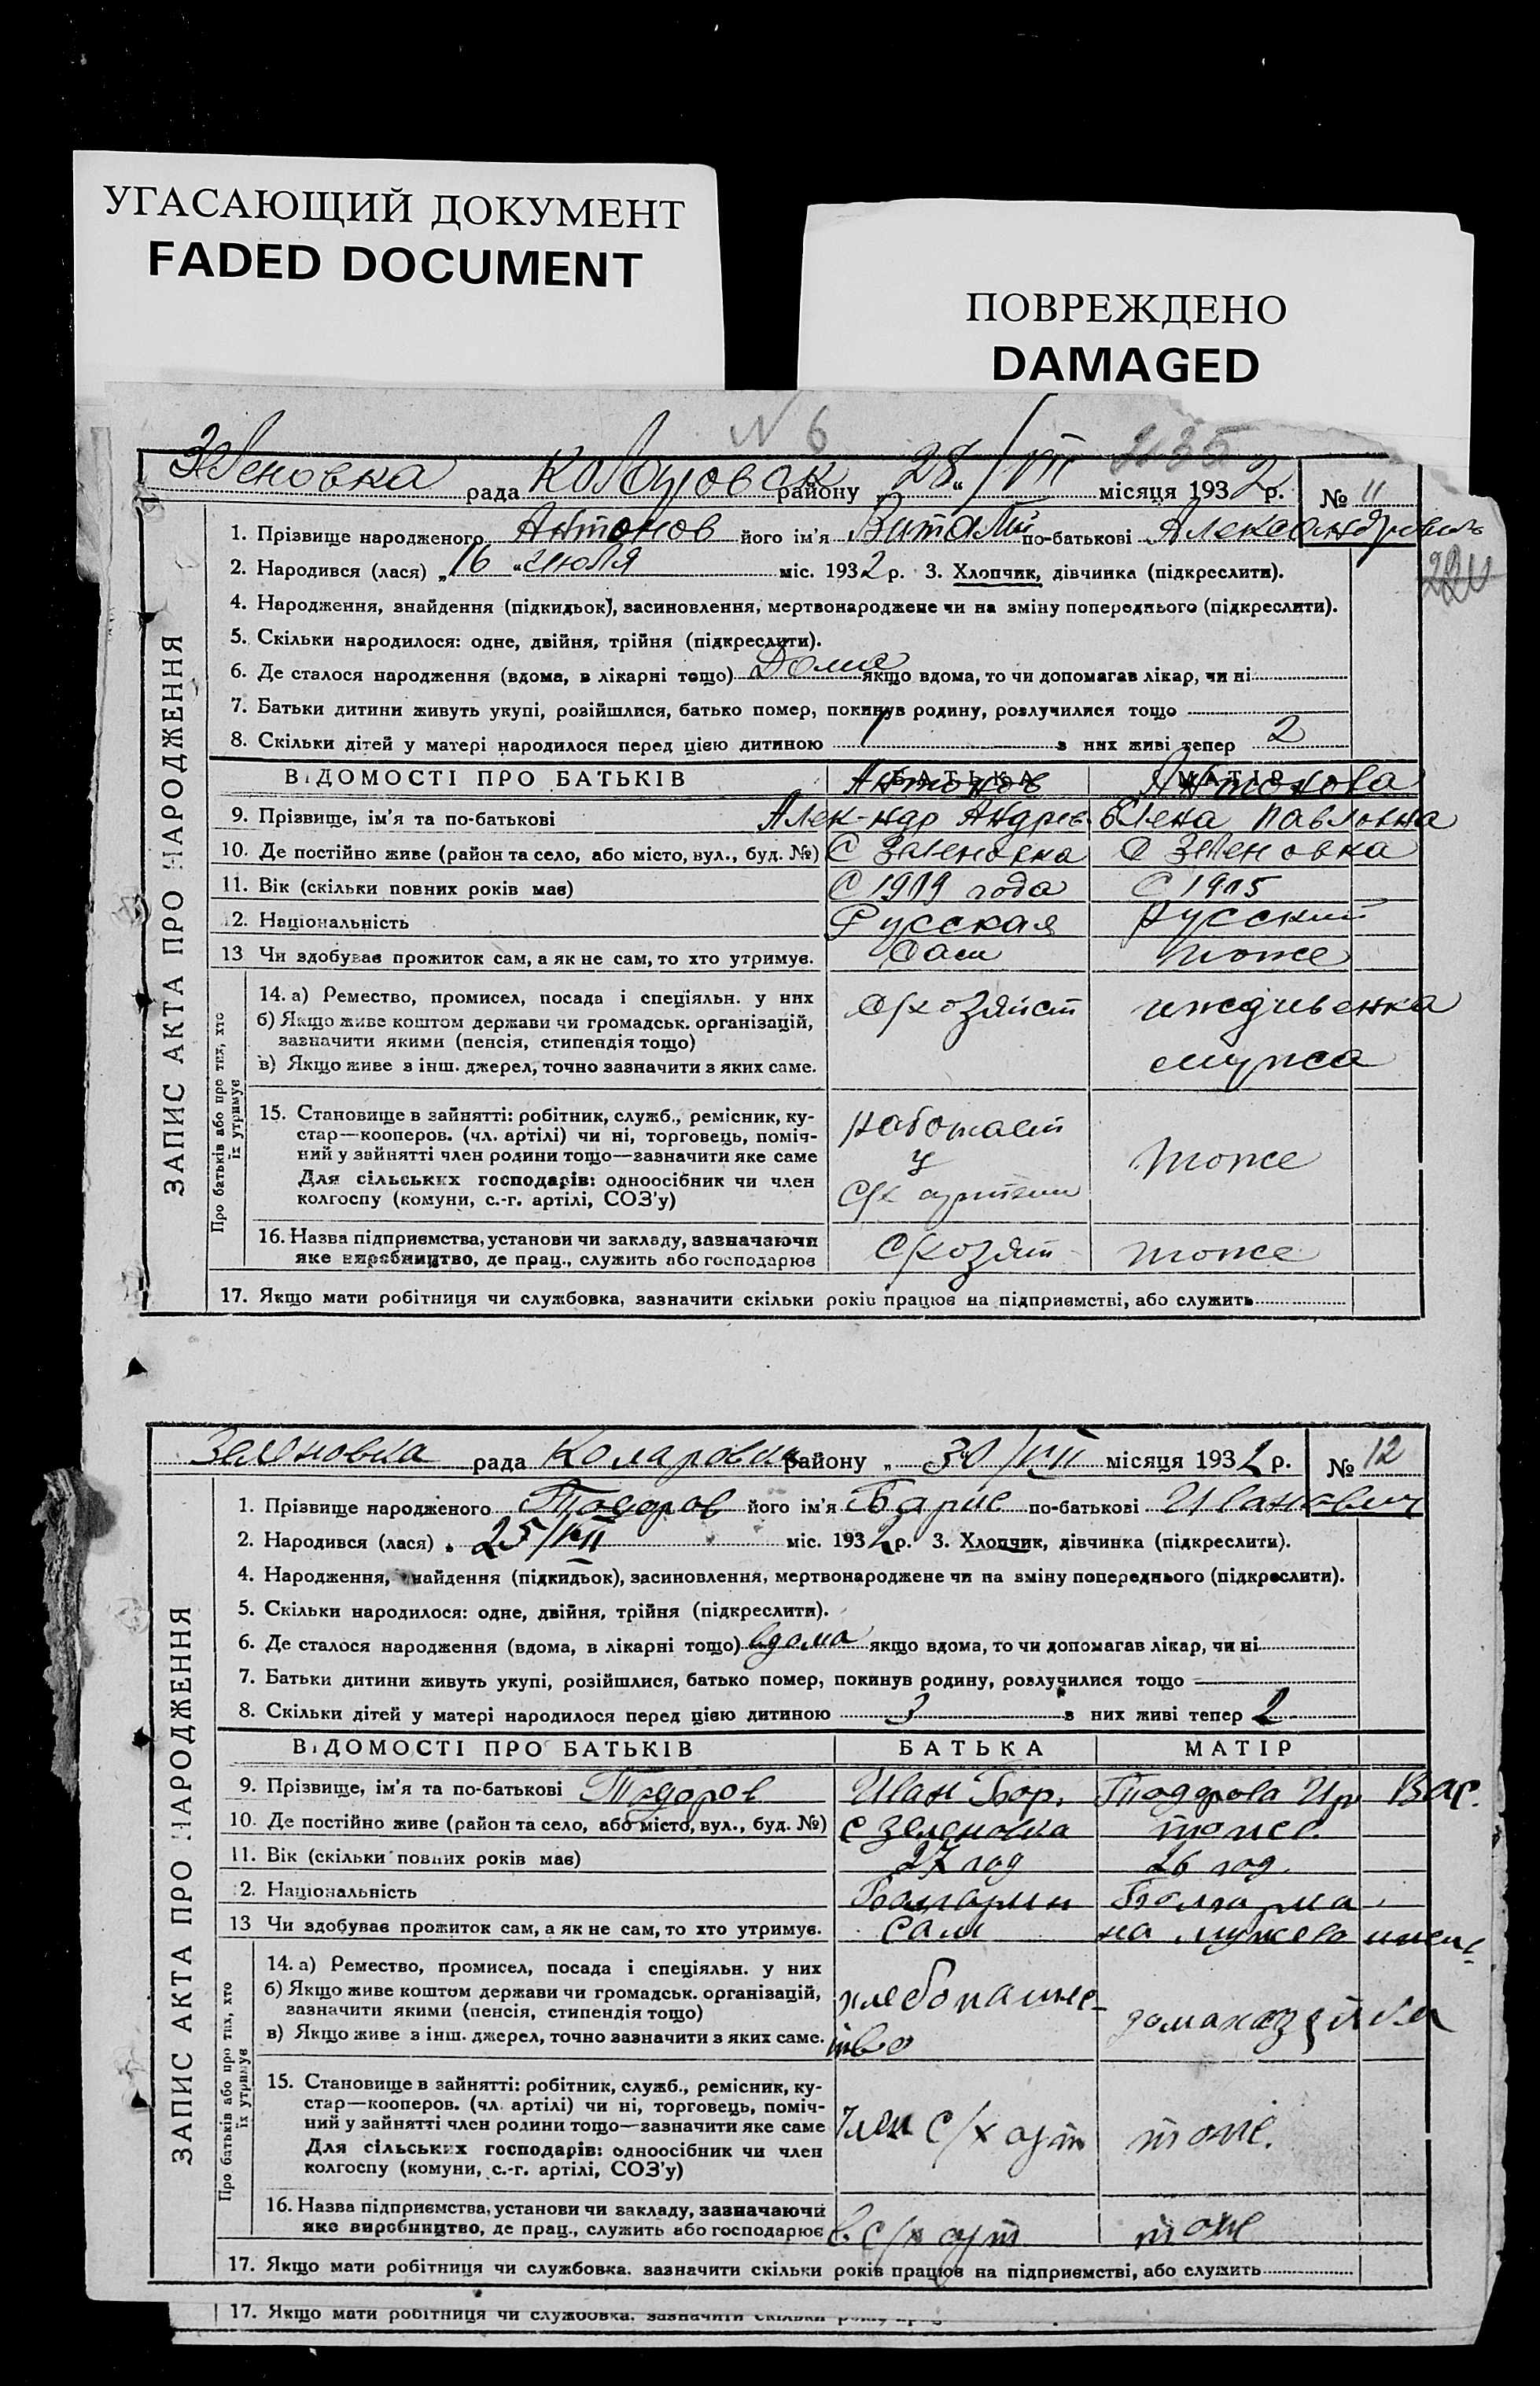 УГАСАЮЩИЙ ДОКУМЕНТ
FADED DOCUMENT
ПОВРЕЖДЕНО
DAMAGED
N 6
235
Зеленовка рада Коларовск району „28“/VII місяця 1932 р. № 11
1. Прізвище народженого Антонов його ім'я Виталий по-батькові Александрович
2. Народився (лася) „16“ июля міс. 1932 р. 3. Хлопчик, дівчинка (підкреслити).
220
4. Народження, знайдення (підкидьок), засиновлення, мертвонароджене чи на зміну попереднього (підкреслити).
5. Скільки народилося: одне, двійня, трійня (підкреслити).
6. Де сталося народження (вдома, в лікарні тощо) Дома якщо вдома, то чи допомагав лікар, чи ні
7. Батьки дитини живуть укупі, розійшлися, батько помер, покинув родину, розлучилися тощо
8. Скільки дітей у матері народилося перед цією дитиною 1 з них живі тепер 2
ВІДОМОСТІ ПРО БАТЬКІВ БАТЬКА МАТІР
Антонов Антонова
9. Прізвище, ім'я та по-батькові Алек-ндр Андрее. Елена Павловна
10. Де постійно живе (район та село, або місто, вул., буд. №) С Зеленовка С Зеленовка
11. Вік (скільки повних років має) С 1909 года С 1905
12. Національність Русская Русский
13 Чи здобуває прожиток сам, а як не сам, то хто утримує. Сам тоже
14. а) Ремество, промисел, посада і спеціяльн. у них с/хозяйст иждивенка
б) Якщо живе коштом держави чи громадськ. організацій,
зазначити якими (пенсія, стипендія тощо) мужа
в) Якщо живе з інш. джерел, точно зазначити з яких саме.
15. Становище в зайнятті: робітник, служб., ремісник, ку-
стар—кооперов. (чл. артілі) чи ні, торговець, поміч- работает
ний у зайнятті член родини тощо—зазначити яке саме у тоже
Для сільських господарів: одноосібник чи член
колгоспу (комуни, с.-г. артілі, СОЗ'у) с/х артели
16. Назва підприємства, установи чи закладу, зазначаючи
яке виробництво, де прац., служить або господарює с/хозяй тоже
17. Якщо мати робітниця чи службовка, зазначити скільки років працює на підприємстві, або служить
ЗАПИС АКТА ПРО НАРОДЖЕННЯ
Про батьків або про тих, хто
їх утримує
Зеленовка рада Коларовка району „30/VII місяця 1932 р. № 12
1. Прізвище народженого Тодоров його ім'я Барис по-батькові Иванович
2. Народився (лася) „25/VII міс. 1932 р. 3. Хлопчик, дівчинка (підкреслити).
4. Народження, знайдення (підкидьок), засиновлення, мертвонароджене чи на зміну попереднього (підкреслити).
5. Скільки народилося: одне, двійня, трійня (підкреслити).
6. Де сталося народження (вдома, в лікарні тощо) вдома якщо вдома, то чи допомагав лікар, чи ні
7. Батьки дитини живуть укупі, розійшлися, батько помер, покинув родину, розлучилися тощо
8. Скільки дітей у матері народилося перед цією дитиною 3 з них живі тепер 2
ВІДОМОСТІ ПРО БАТЬКІВ БАТЬКА МАТІР
9. Прізвище, ім'я та по-батькові Тодоров Иван Бор. Тодорова Ир Вас.
10. Де постійно живе (район та село, або місто, вул., буд. №) с Зеленовка тоже.
11. Вік (скільки повних років має) 27 год 26 год.
12. Національність Балгарин Болгарка
13 Чи здобуває прожиток сам, а як не сам, то хто утримує. Сам на мужево
14. а) Ремество, промисел, посада і спеціяльн. у них
б) Якщо живе коштом держави чи громадськ. організацій, хлебопашес-
зазначити якими (пенсія, стипендія тощо) домахазяйка
в) Якщо живе з інш. джерел, точно зазначити з яких саме. тво
15. Становище в зайнятті: робітник, служб., ремісник, ку-
стар—кооперов. (чл. артілі) чи ні, торговець, поміч-
ний у зайнятті член родини тощо—зазначити яке саме Член с/х арт тоже.
Для сільських господарів: одноосібник чи член
колгоспу (комуни, с.-г. артілі, СОЗ'у)
16. Назва підприємства, установи чи закладу, зазначаючи
яке виробництво, де прац., служить або господарює в с/х арт тоже
17. Якщо мати робітниця чи службовка. зазначити скільки років працює на підприємстві, або служить
ЗАПИС АКТА ПРО НАРОДЖЕННЯ
Про батьків або про тих, хто
їх утримує
17. Якщо мати робітниця чи службовка. зазначити скільки